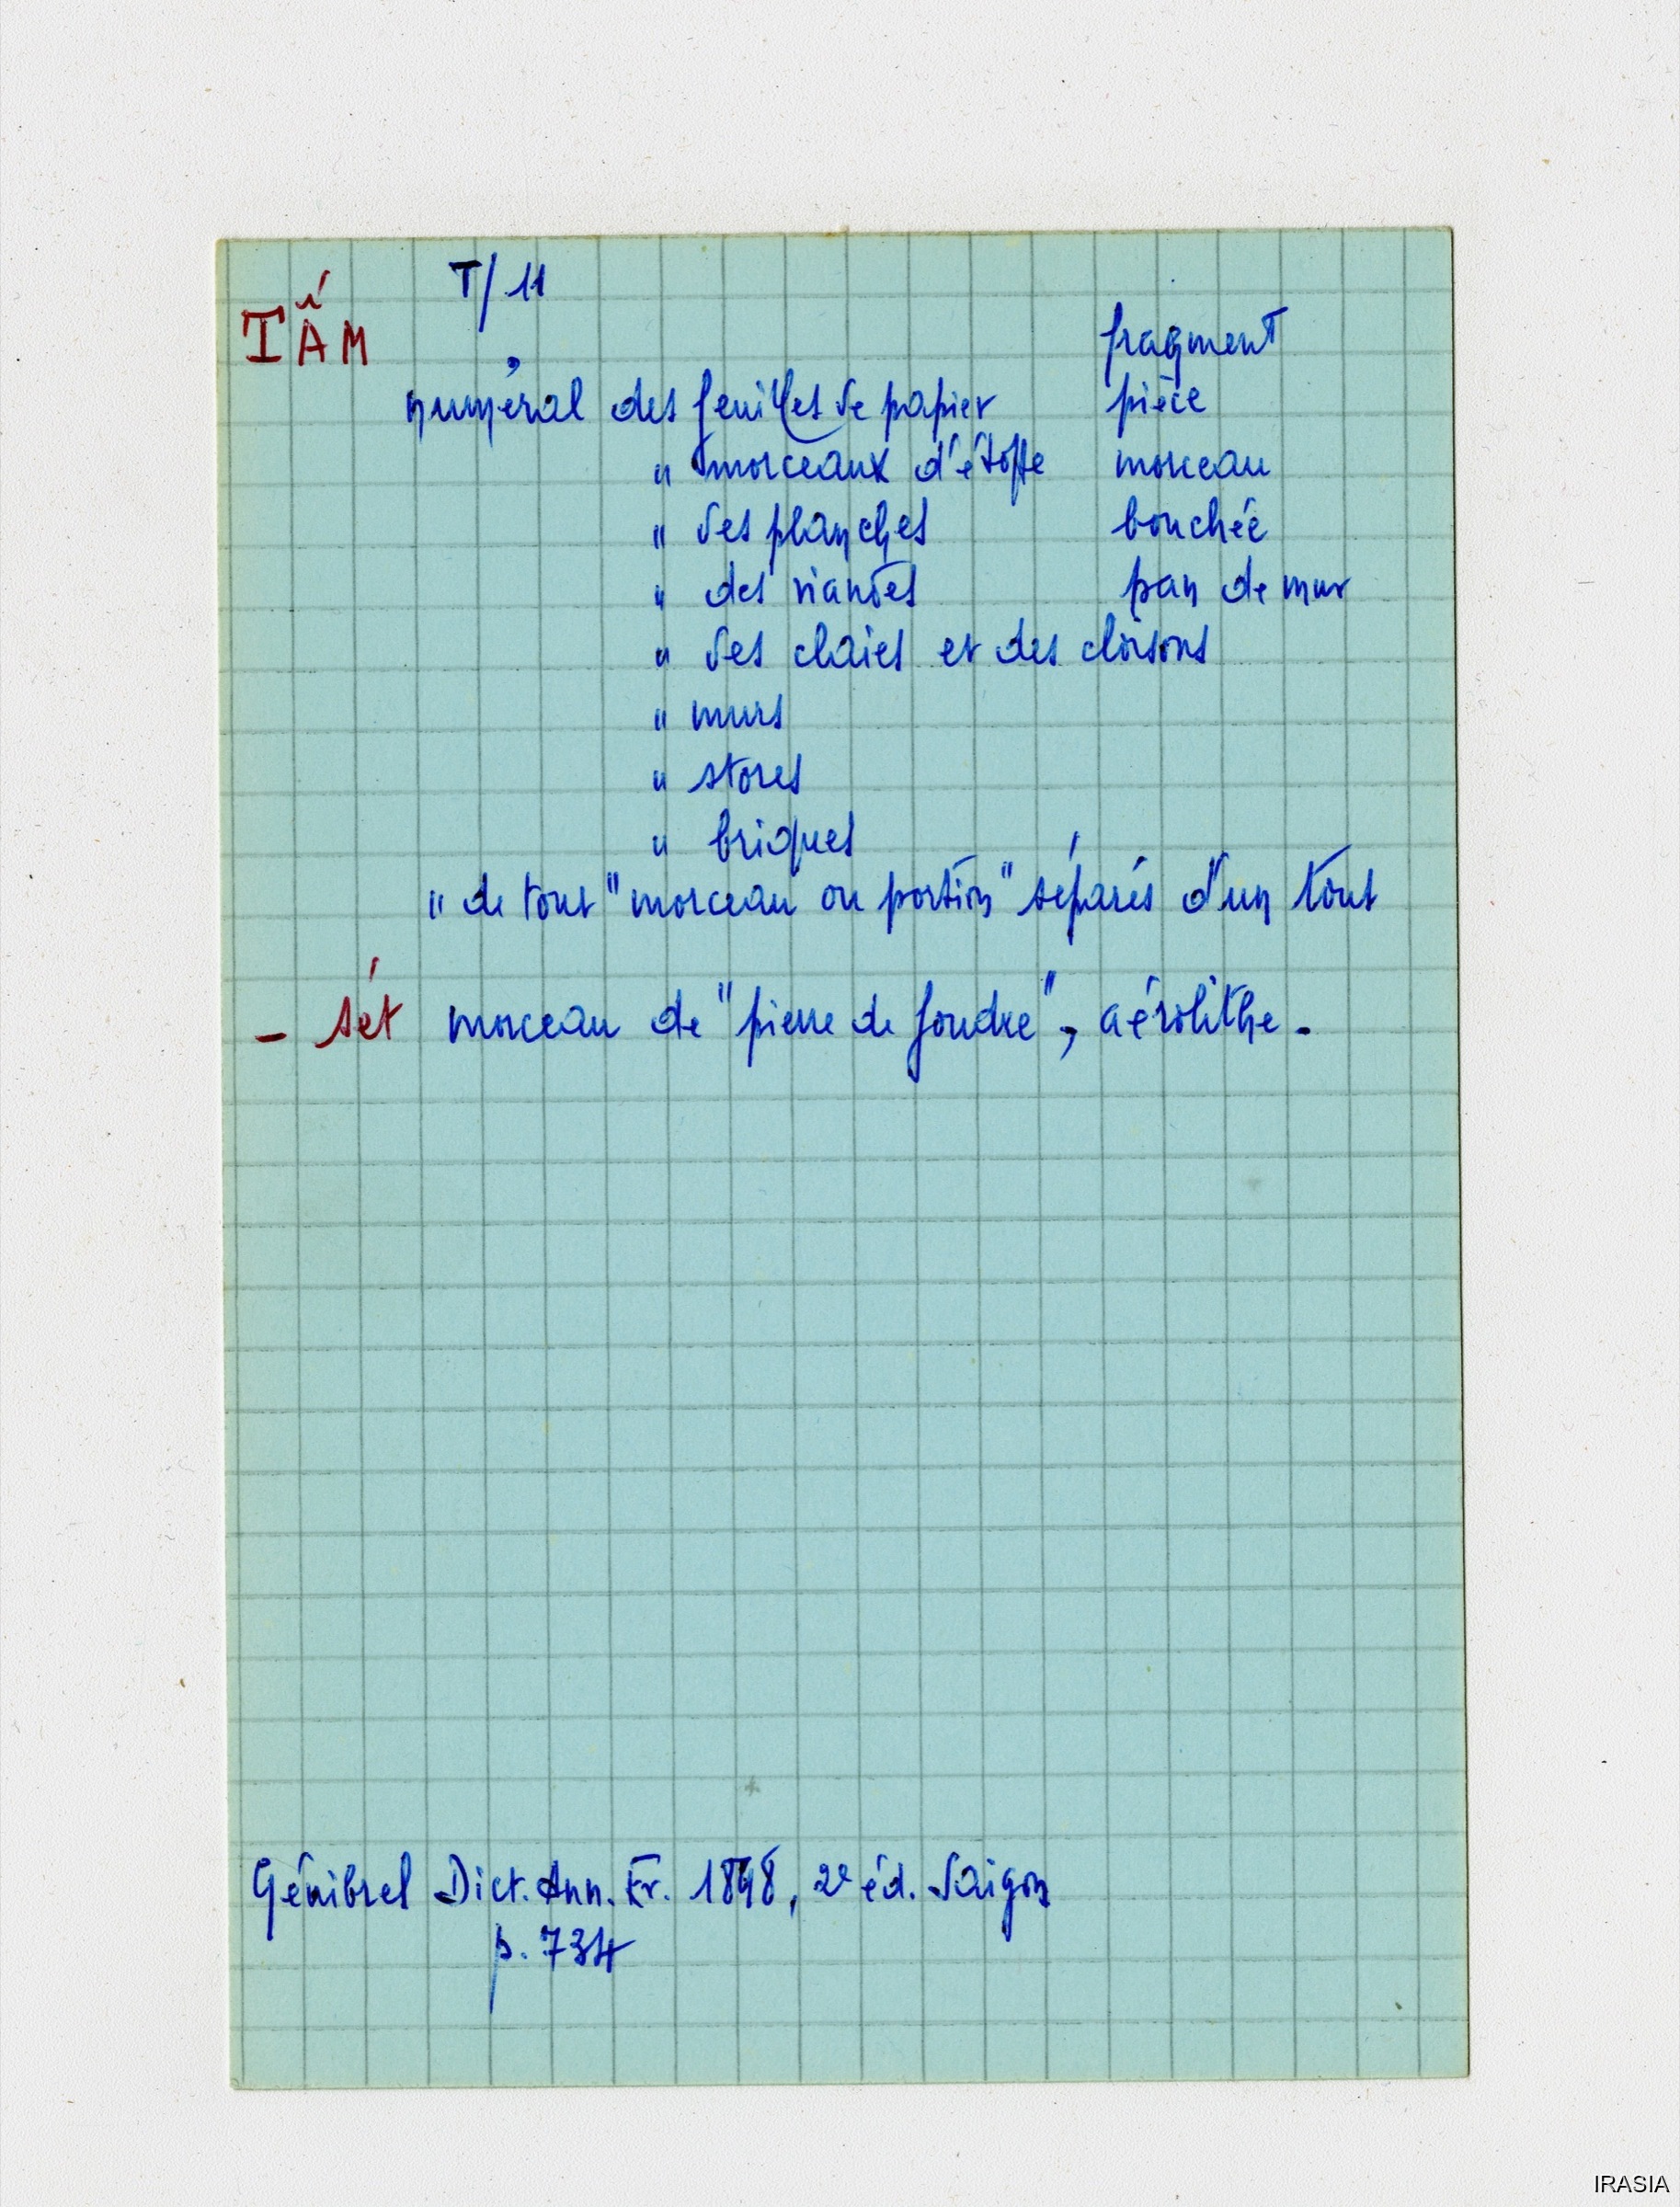 T/11
TẤM fragment
numéral des feuilles de papier pièce
" morceaux d'étoffe morceau
" des planches bouchée
" des viandes pan de mur
" des claies et des cloisons
" murs
" stores
" briques
" de tout "morceau ou portion" séparés d'un tout
- sét morceau de "pierre de foudre", aérolithe.
Génibrel Dict. Ann. Fr. 1898, 2e éd. Saigon
p. 734
IRASIA